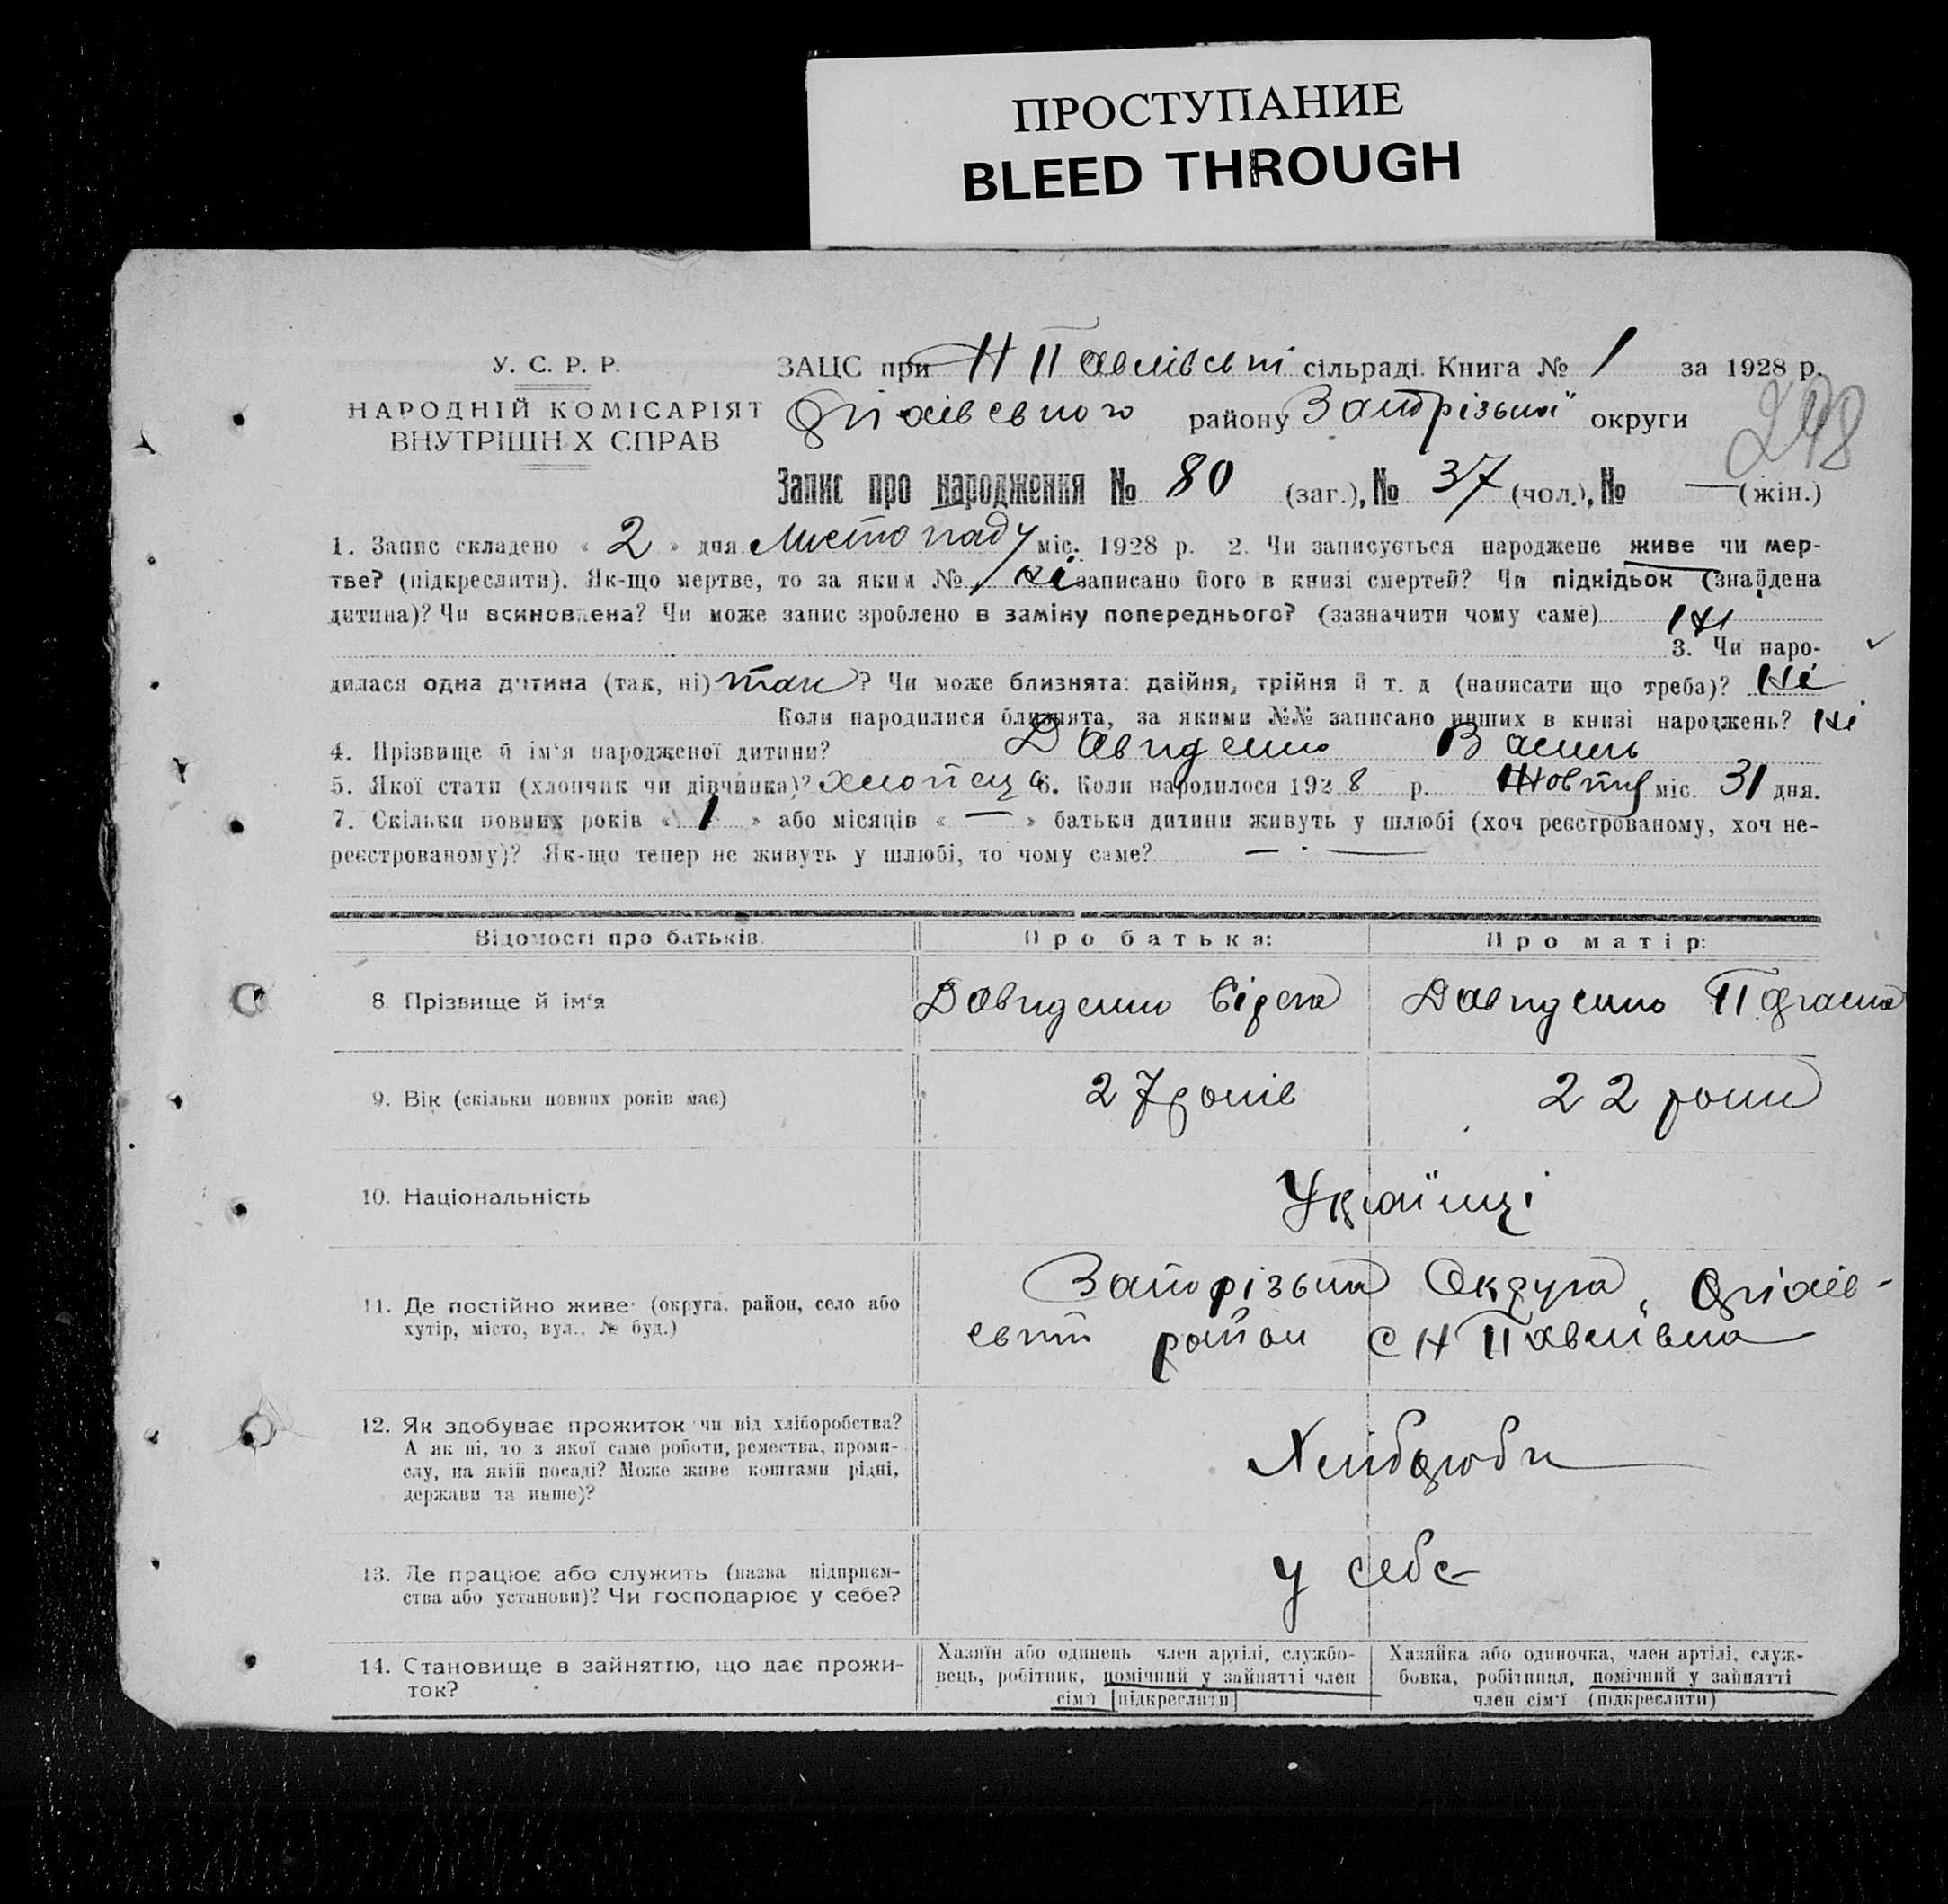 ПРОСТУПАНИЕ
BLEED THROUGH
У. С. Р. Р.
НАРОДНІЙ КОМІСАРІЯТ
ВНУТРІШН Х СПРАВ
ЗАЦС при Н Павлівські сільраді. Книга № 1 за 1928 р.
району Запорізької округи
298
Запис про народження № 80 (заг.), № 37 (чол.), № — (жін.)
1. Запис складено « 2 » дня Листопаду міс. 1928 р. 2. Чи записується народжене живе чи мер-
тве? (підкреслити). Як-що мертве, то за яким № ні записано його в книзі смертей? Чи підкідьок (знайдена
дитина)? Чи всиновлена? Чи може запис зроблено в заміну попереднього? (зазначити чому саме) ні
3. Чи наро-
дилася одна дитина (так, ні) так? Чи може близнята: двійня, трійня й т. д (написати що треба)? Ні
Коли народилися близнята, за якими №№ записано инших в книзі народжень? Ні
4. Прізвище й ім‘я народженої дитини? Давиденко Василь
5. Якої стати (хлопчик чи дівчинка)? хлопець 6. Коли народилося 1928 р. Жовтня міс. 31 дня.
7. Скільки повних років « 1 » або місяців « — » батьки дитини живуть у шлюбі (хоч реєстрованому, хоч не-
реєстрованому)? Як-що тепер не живуть у шлюбі, то чому саме? —
Відомості про батьків.
Про батька:
Про матір:
8. Прізвище й ім‘я
Давиденко
Давиденко
9. Вік (скільки повних років має)
27 років
22 роки
10. Національність
Українці
11. Де постійно живе (округа, район, село або
хутір, місто, вул., № буд.)
Запорізька Округа,
район с Н Павлівка
12. Як здобуває прожиток чи від хліборобства?
А як ні, то з якої саме роботи, ремества, проми-
слу, на якій посаді? Може живе коштами рідні,
держави та инше)?
Хлібороби
13. Де працює або служить (назва підприєм-
ства або установи)? Чи господарює у себе?
у себе
14. Становище в зайняттю, що дає прожи-
ток?
Хазяїн або одинець член артілі, службо-
вець, робітник, помічний у зайнятті член
сім‘ї [підкреслити]
Хазяйка або одиночка, член артілі, служ-
бовка, робітниця, помічний у зайнятті
член сім‘ї (підкреслити)